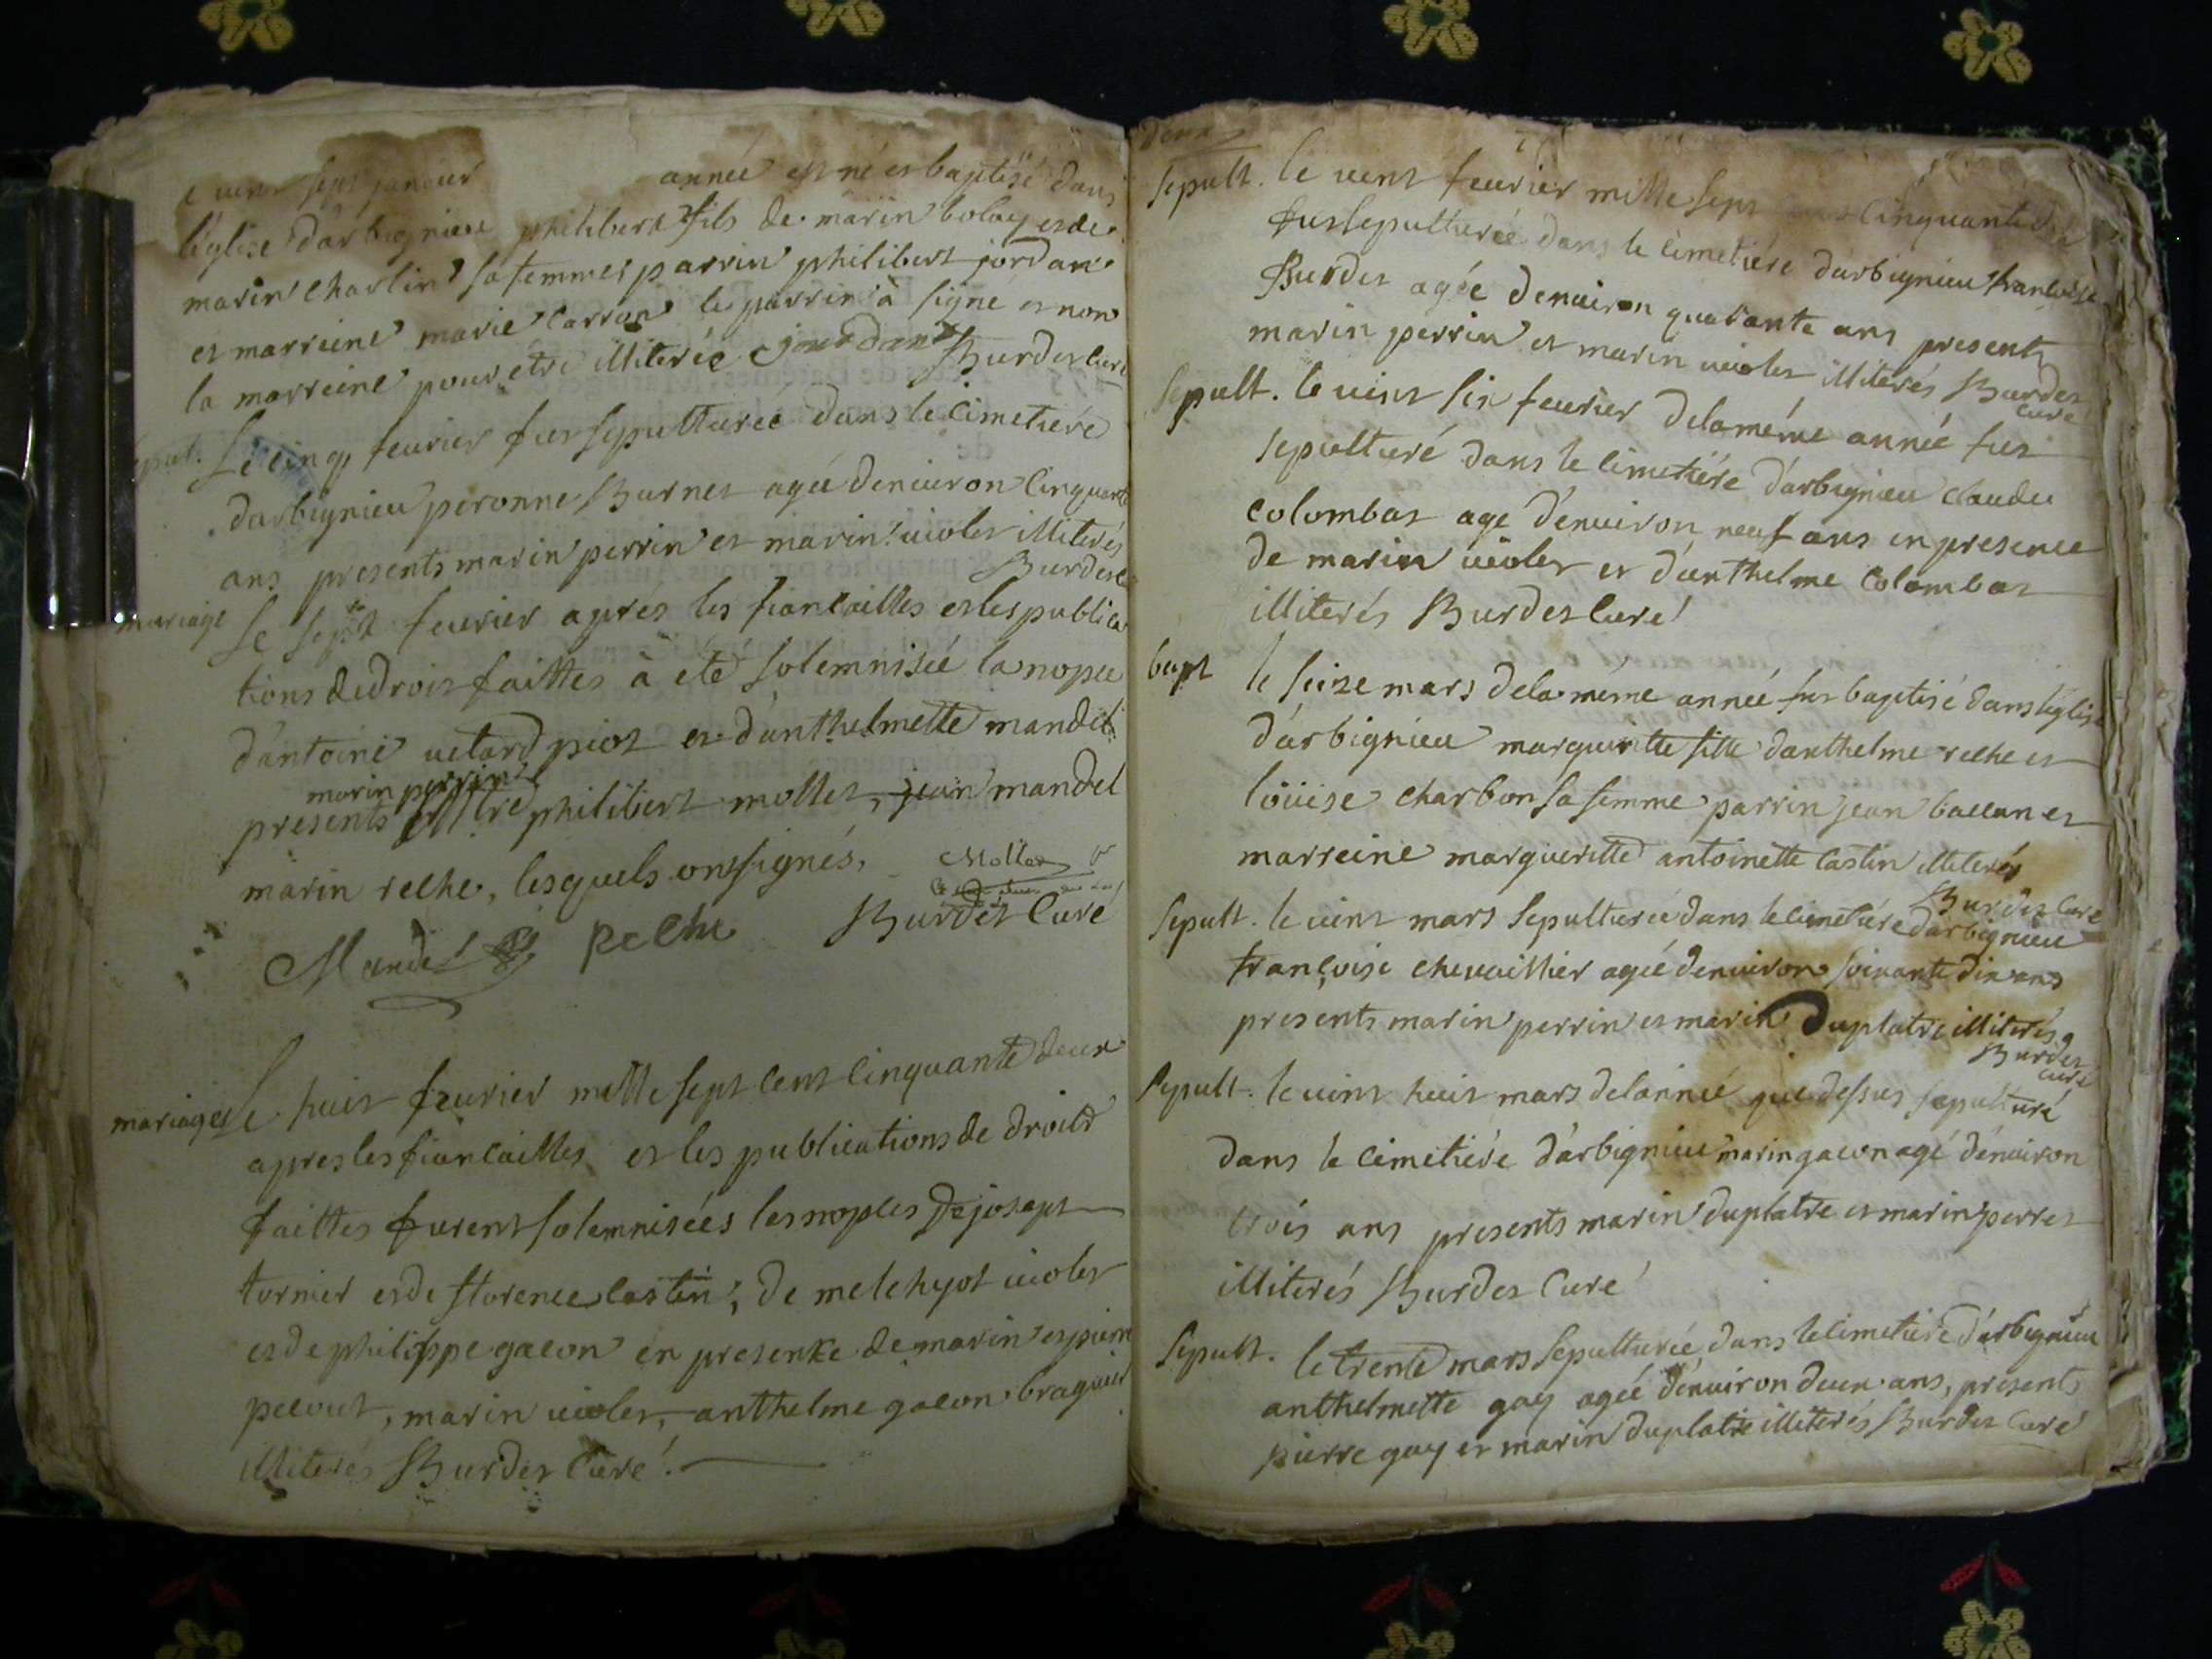 vint sept janvier année est né et baptisé dans
l'église d'arbignieu philibert fils de marin bolay et de
marin charlin sa femme parrin philibert jordan
et marreine marie carron le parrin à signé et non
la marreine pour étre illiterée jourdan Burdet curé
sepult. Le cinq feurier fut sepulturée dans le cimetiére
d'arbignieu peronne Burnet agée denuiron cinquante
ans presents marin perrin et marin uiolet illiterés
Burdet c
mariage Le sept feurier aprés les fiancailles et les publica
tions de drois faittes à eté solemnisée la nopce
d'antoine uetard piot et d'anthelmette mandel
marin perrin
presents philibert mollet, jean mandel
marin reche, lesquels ont signés,
Mollet
Mandel Reche Burdet Curé
mariages Le huit feurier mille sept cent cinquante deux
apres les fiancailles et les publications de droits
faittes furent solemnisées les nopces de josept
tornier et de florence castin, de melchyot uiolet
et de philippe gacon en presence de marin et pierre
pecout, marin uiolet, anthelme gacon braquier
illiterés Burdet Curé.
deux
sepult. le vint feurier mille sept cent cinquante deux
fut sepulturée dans le cimetiére d'arbignieu francoise
Burdet agée denuiron quarante ans presents
marin perrin et marin uiolet illiterés Burdet
curé
sepult. le vint six feurier de la méme année fut
sepulturé dans le cimetiére d'arbignieu claude
colombat age d'enuiron neuf ans en presence
de marin uiolet et d'anthelme colombat
illiterés Burdet Curé
bapt le seize mars de la méme année fut baptisé dans l'eglise
d'arbignieu margueritte fille d'anthelme reche et
loüise charbon sa femme parrin jean baccan et
marreine margueritte antoinette castin illiterés
Burdet Curé
sepult. le vint mars sepulturée dans le cimetiére d'arbignieu
françoise cheuaillier agée denuiron soixante dix ans
presents marin perrin et marin Duplatre illiterés
Burdet
curé
sepult. le vint huit mars de l'année que dessus sepulturé
dans le cimetiére d'arbignieu marin gacon agé d'enuiron
trois ans presents marin duplatre et marin perret
illiterés Burdet Curé
sepult. le trente mars sepulturée dans le cimetiére d'arbignieu
anthelmette gay agée d'enuiron deux ans, presents
pierre gay et marin duplatre illiterés Burdet Curé